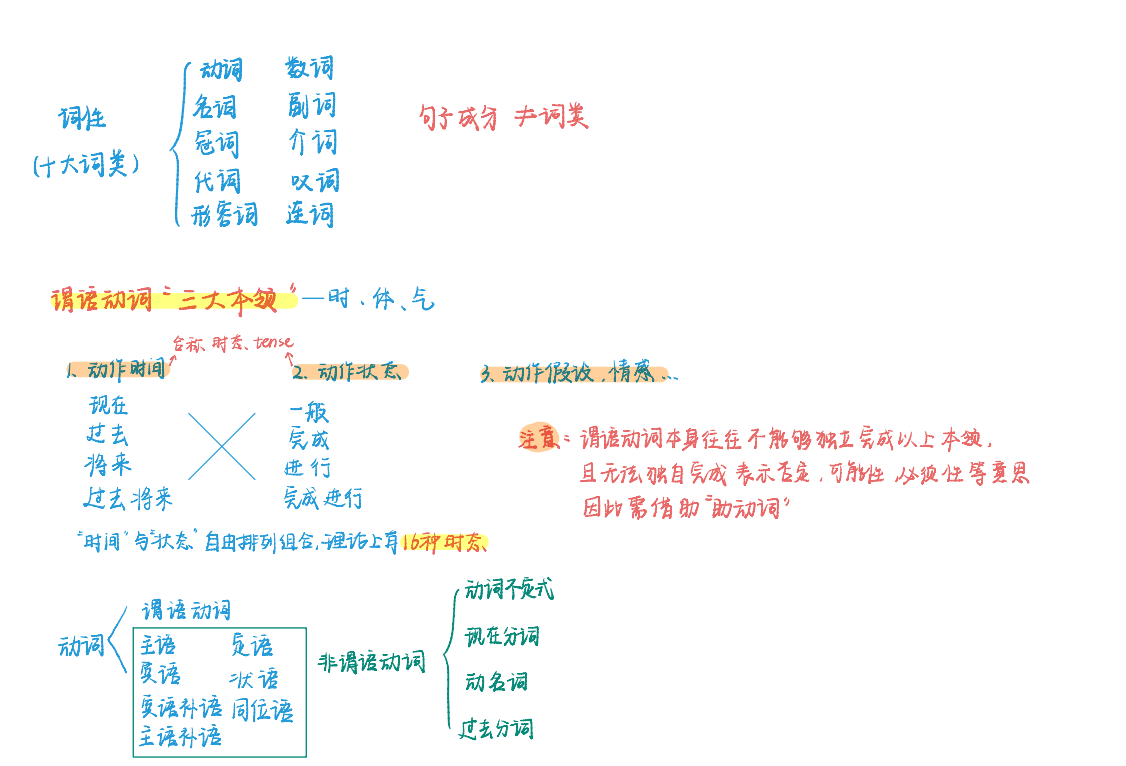 词性
(十大词类)
动词 数词
名词 副词
冠词 介词
代词 叹词
形容词 连词
句子成分 ≠词类
谓语动词“三大本领”—时、体、气
合称、时态、tense
1. 动作时间
现在
过去
将来
过去将来
2. 动作状态
一般
完成
进行
完成进行
3. 动作假设、情感...
注意: 谓语动词本身往往不能够独立完成以上本领,
且无法独自完成表示否定,可能性,必须性等意思
因此需借助“助动词”
“时间”与“状态”自由排列组合,理论上有16种时态
动词
谓语动词
主语 定语
宾语 状语
宾语补语 同位语
主语补语
非谓语动词
动词不定式
现在分词
动名词
过去分词